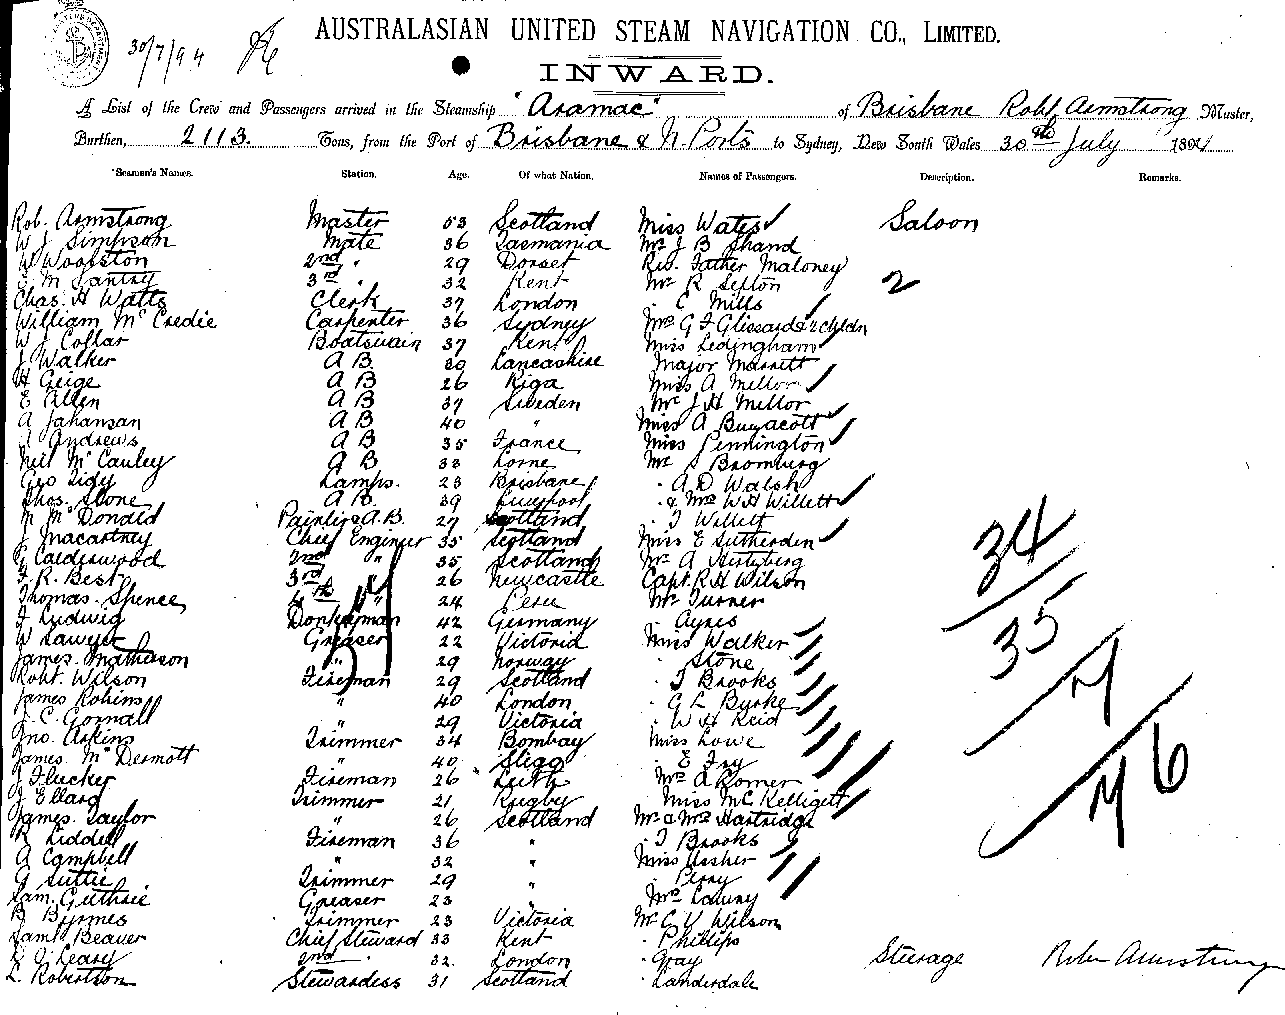 30/7/94
AUSTRALASIAN UNITED STEAM NAVIGATION CO., LIMITED.
INWARD.
A List of the Crew and Passengers arrived in the Steamship "Aramac" of Brisbane Robt Armstrong Master,
Burthen, 2113. Tons, from the Port of Brisbane & N. Ports to Sydney, New South Wales 30th July 1894
Seamen's Names. Station. Age. Of what Nation. Names of Passengers. Description. Remarks.
Rob. Armstrong Master 53 Scotland Miss Wates Saloon
W J Simpson Mate 36 Tasmania Mr J B Shand
W Woolston 2nd " 29 Dorset Rev. Father Maloney
E M Santry 3rd " 32 Kent Mr R Sefton 2
Chas. H Watts Clerk 37 London " C Mills
William Mc Credie Carpenter 36 Sydney Mrs G F Glissard & 2 childn
W J Collar Boatswain 37 Kent Miss Ledingham
J Walker A B. 30 Lancashire Major Marrett
H Geige A B 26 Riga Miss A Mellor
E Allen A B 37 Sweden Mr J H Mellor
A Johansan A B 40 " Miss A Buzacott
A Andrews A B 35 France Miss Pennington
Neil Mc Cauley A B 33 Lorne Mr S Bromberg
Geo Tidy Lamps. 23 Brisbane " A D Walsh
Thos. Stone A B. 39 Liverpool " & Mrs W H Willett
N Mc Donald Painter A.B. 27 Scotland " T Willett
J Macartney Chief Engineer 35 Scotland Miss E Sutherden
G Calderwood 2nd " 35 Scotland Mr A
F. R. Best 3rd 26 Newcastle Capt. R H Wilson
Thomas Spence 4th " 24 Peru Mr Turner
J Ludwig Donkeyman 42 Germany " Ayres
W Sawyer Greaser 22 Victoria Miss Walker
James Mathieson " 29 Norway " Stone
Robt. Wilson Fireman 29 Scotland " T Brooks
James Robins " 40 London " G L Burke
J. C. Gornall " 29 Victoria " W H Reid
Jno. Askins Trimmer 34 Bombay Miss Lowe
James Mc Dermott " 40 Sligo " E Fry
J Flucker Fireman 26 Leith Mrs A Romer
J Ellard Trimmer 21 Rugby Miss Mc Kelligett
James Taylor " 26 Scotland Mr & Mrs Hartridge
R Liddell Fireman 36 " " T Brooks
A Campbell " 32 " Miss Ussher
G Suttie Trimmer 29 " " Perry
Sam. Guthrie Greaser 23 Mrs
B Byrnes Trimmer 23 Victoria Mr C V Wilson
Saml Beaver Chief Steward 33 Kent " Phillips
D J Leary 2nd " 32 London " Gray Steerage
L. Robertson Stewardess 31 Scotland " Landerdale
34
35
7
76